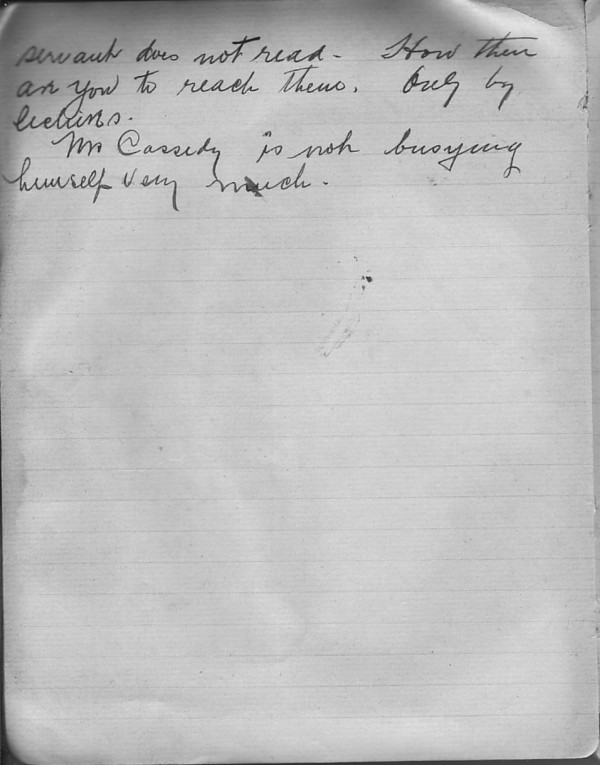 servant does not read - How then
are you to reach them. Only by
lectures.
Mr Cassedy is not busying
himself very much.